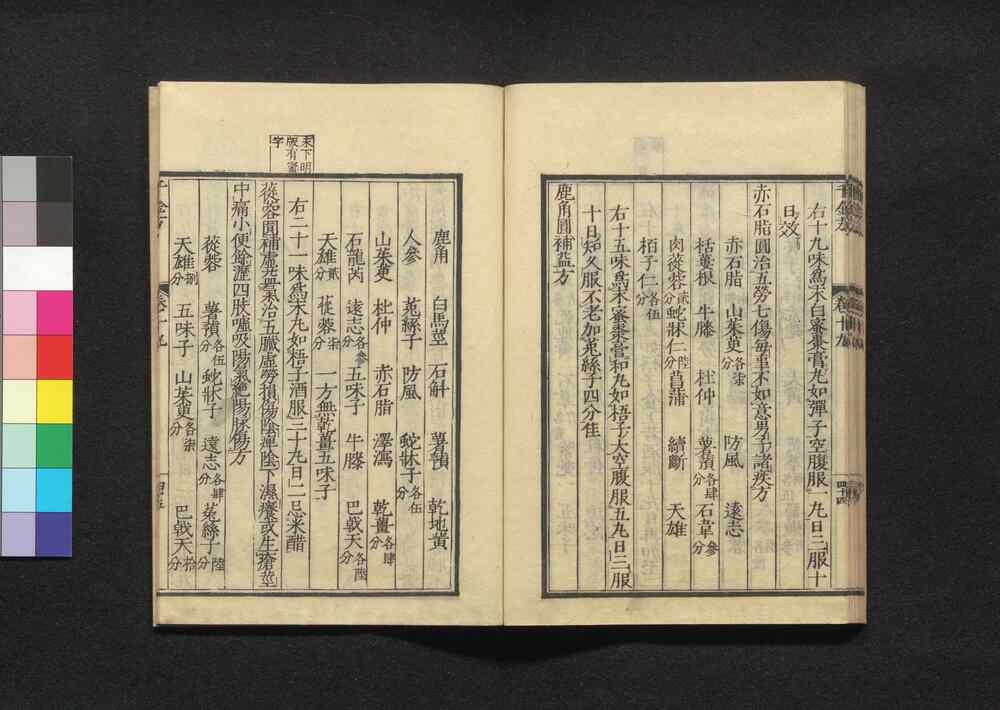 右十九味爲末白蜜棗膏丸如彈子空腹服一丸日三服十
日效
赤石脂圓治五勞七傷每重不如意男子諸疾方
赤石脂 山茱萸各柒分 防風 遠志
栝蔞根 牛膝 杜仲 薯蕷各肆分 石韋參分
肉蓯蓉貳分 蛇牀仁陸分 菖蒲 續斷 天雄
柏子仁各伍分
右十五味爲末蜜棗膏和丸如梧子大空腹服五丸日三服
十日知久服不老加菟絲子四分佳
鹿角圓補益方
千金方 卷十九
鹿角 白馬莖 石斛 薯蕷 乾地黃
人參 菟絲子 防風 蛇牀子各伍分
山茱萸 杜仲 赤石脂 澤瀉 乾薑各肆分
石龍芮 遠志各參分 五味子 牛膝 巴戟天各陸分
天雄貳分 蓯蓉柒分 一方無乾薑五味子
右二十一味爲末丸如梧子酒服三十丸日二忌米醋
末下明
版有蜜
字
蓯蓉圓補虛益氣治五臟虛勞損傷陰痺陰下濕癢或生瘡莖
中痛小便餘瀝四肢噓吸陽氣絕陽脉傷方
蓯蓉 薯蕷各伍分 蛇牀子 遠志各肆分 菟絲子陸分
天雄捌分 五味子 山茱萸各柒分 巴戟天拾分